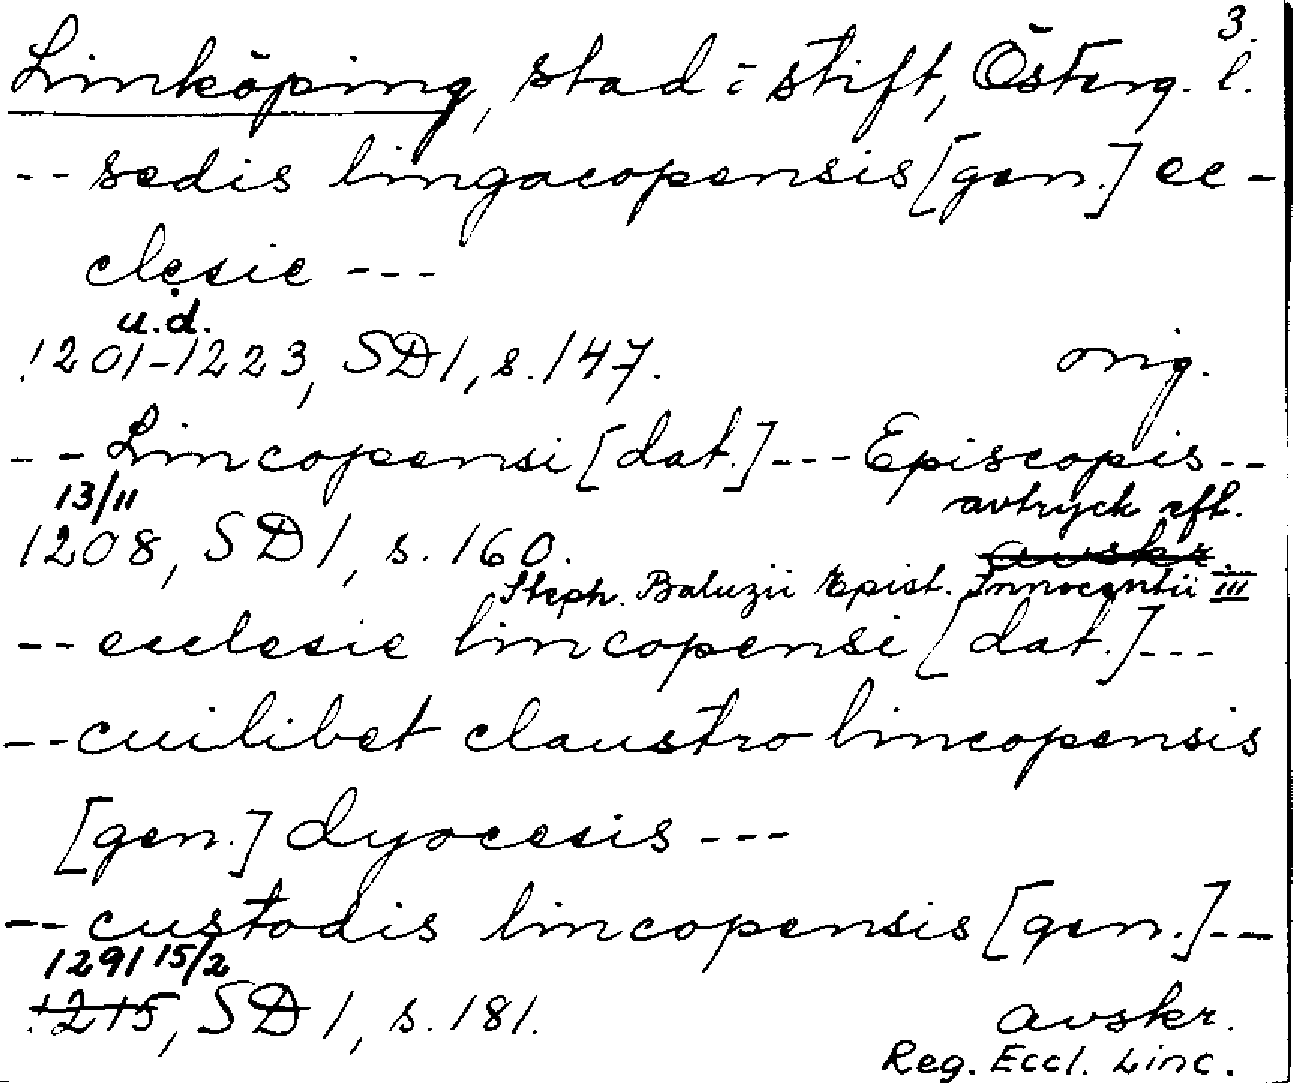 3.
Linköping, stad = stift, Österg. l.
-- sedis lingacopensis [gen.] ec-
clesie ---
u.d.
1201-1223, SD 1, s. 147. orig.
-- Lincopensi [dat.] --- Episcopis --
13/11 avtryck eft.
1208, SD 1, s. 160. avskr.
Steph. Baluzii Epist. Innocentii III
-- ecclesie lincopensi [dat.] ---
-- cuilibet claustro lincopensis
[gen.] dyocesis ---
-- custodis lincopensis [gen.] --
1291 15/2
1215, SD 1, s. 181. avskr.
Reg. Eccl. Linc.